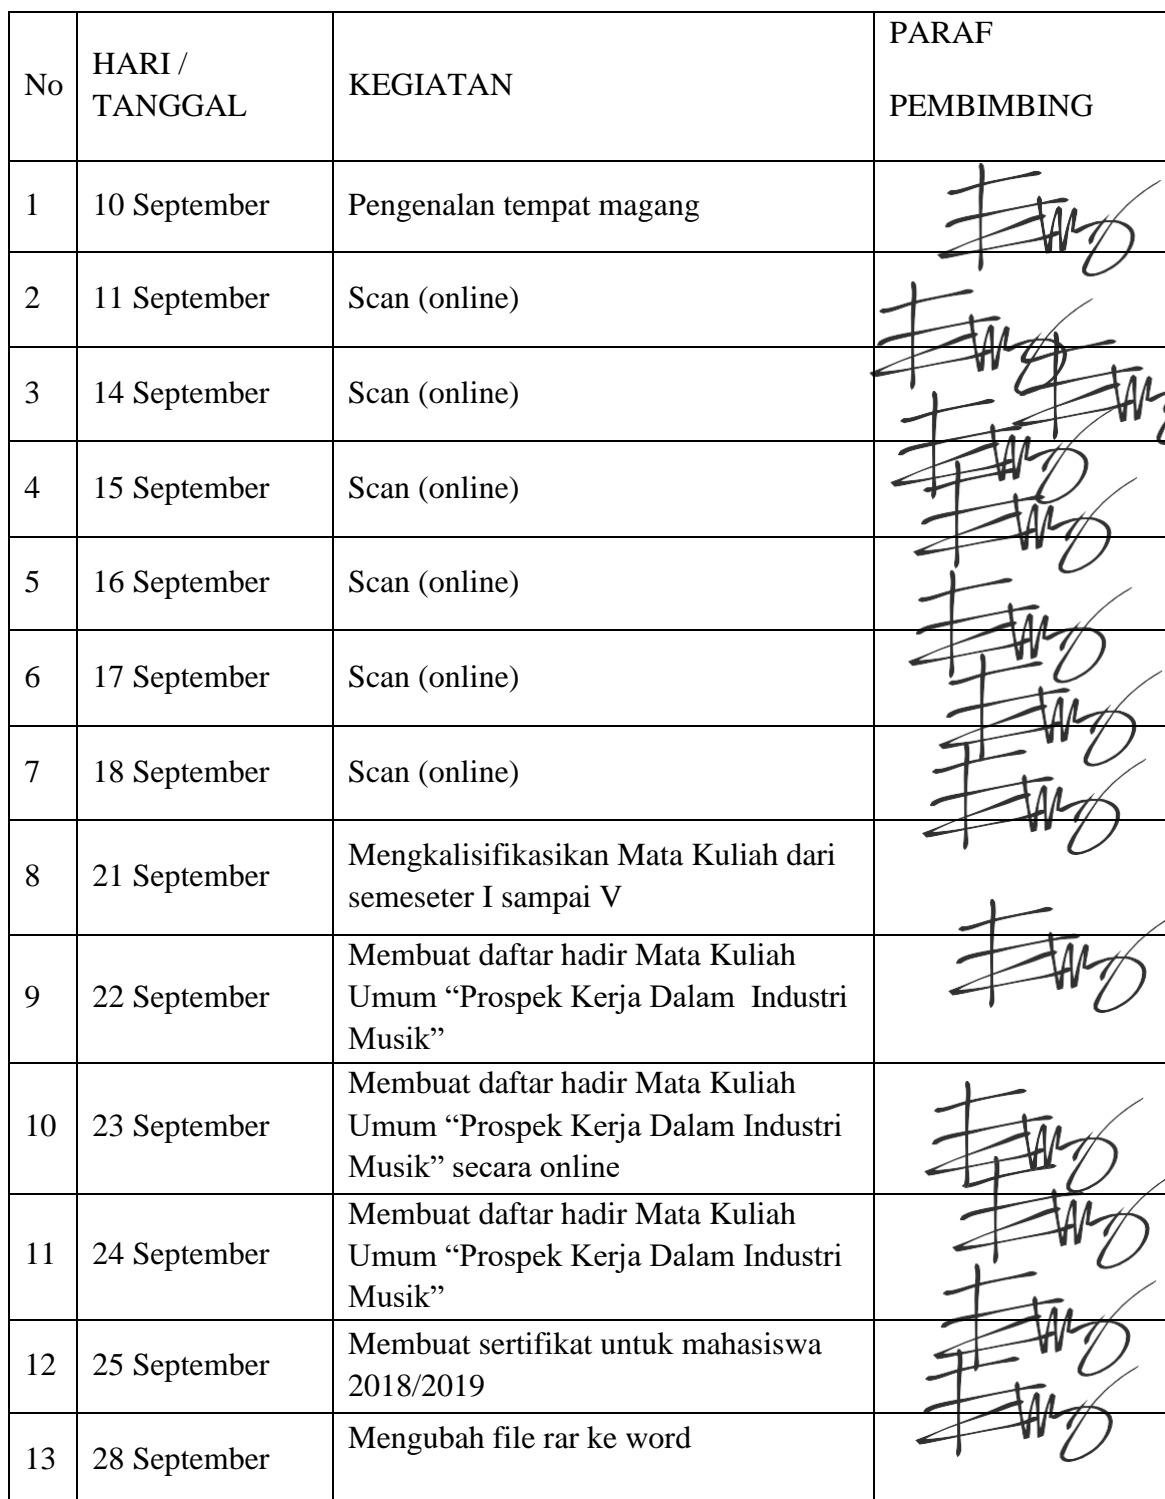 No
HARI /
TANGGAL
KEGIATAN
PARAF
PEMBIMBING
1
10 September
Pengenalan tempat magang
2
11 September
Scan (online)
3
14 September
Scan (online)
4
15 September
Scan (online)
5
16 September
Scan (online)
6
17 September
Scan (online)
7
18 September
Scan (online)
8
21 September
Mengkalisifikasikan Mata Kuliah dari
semeseter I sampai V
9
22 September
Membuat daftar hadir Mata Kuliah
Umum “Prospek Kerja Dalam  Industri
Musik”
10
23 September
Membuat daftar hadir Mata Kuliah
Umum “Prospek Kerja Dalam Industri
Musik” secara online
11
24 September
Membuat daftar hadir Mata Kuliah
Umum “Prospek Kerja Dalam Industri
Musik”
12
25 September
Membuat sertifikat untuk mahasiswa
2018/2019
13
28 September
Mengubah file rar ke word